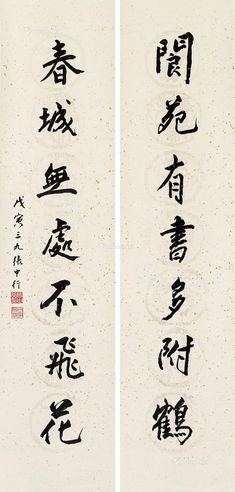 閬苑有書多附鶴
春城無處不飛花
戊寅三九張中行